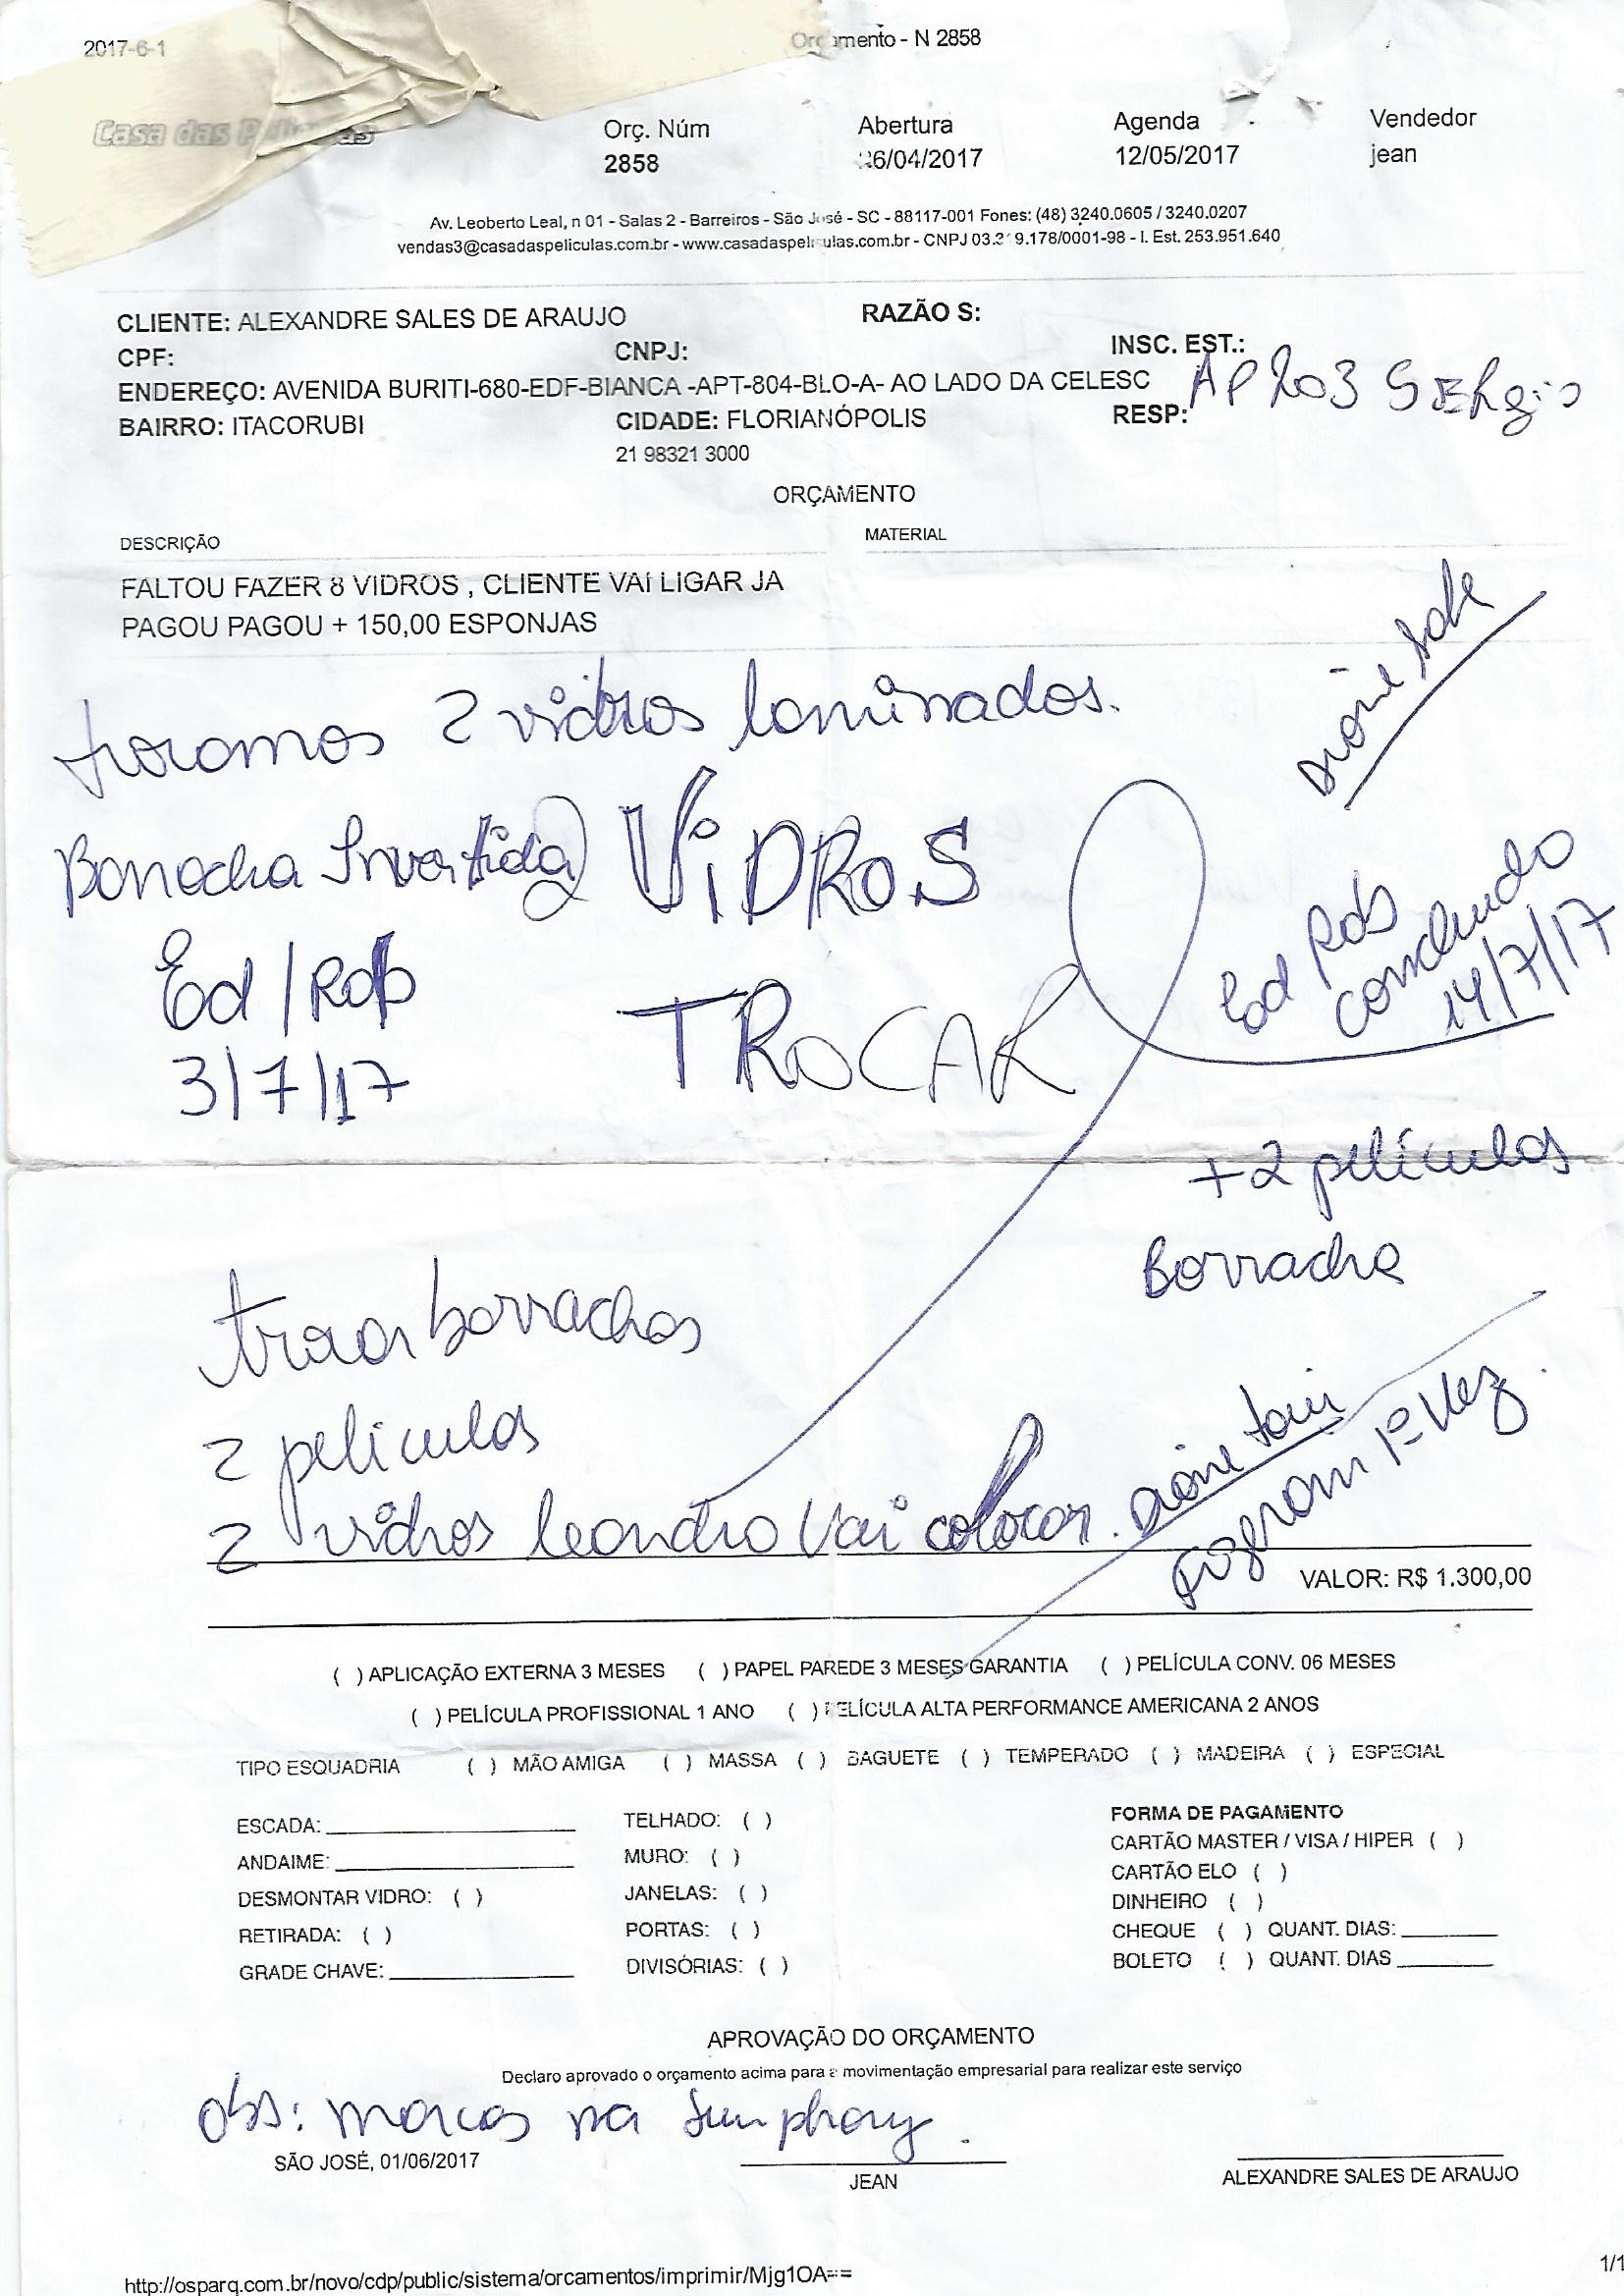 2017-6-1
Orçamento - N 2858
Casa das
Orç. Núm Abertura Agenda Vendedor
2858 26/04/2017 12/05/2017 jean
Av. Leoberto Leal, n 01 - Salas 2 - Barreiros - São José - SC - 88117-001 Fones: (48) 3240.0605 / 3240.0207
vendas3@casadaspeliculas.com.br - www.casadaspeliculas.com.br - CNPJ 9.178/0001-98 - I. Est. 253.951.640
CLIENTE: ALEXANDRE SALES DE ARAUJO RAZÃO S:
CPF: CNPJ: INSC. EST.:
ENDEREÇO: AVENIDA BURITI-680-EDF-BIANCA -APT-804-BLO-A- AO LADO DA CELESC
AP 203 SERgio
BAIRRO: ITACORUBI CIDADE: FLORIANÓPOLIS RESP:
21 98321 3000
ORÇAMENTO
DESCRIÇÃO MATERIAL
FALTOU FAZER 8 VIDROS , CLIENTE VAI LIGAR JA
PAGOU PAGOU + 150,00 ESPONJAS
2 vidros laminados.
Invertida VIDROS
Ed / Rob TROCAR
3/7/17
Ed Rob
14/7/17
+2 películas
Borracha
borrachas
2 películas
2 vidros leandro Vai colocar.
1ª Vez.
VALOR: R$ 1.300,00
( ) APLICAÇÃO EXTERNA 3 MESES ( ) PAPEL PAREDE 3 MESES GARANTIA ( ) PELÍCULA CONV. 06 MESES
( ) PELÍCULA PROFISSIONAL 1 ANO ( ) PELÍCULA ALTA PERFORMANCE AMERICANA 2 ANOS
TIPO ESQUADRIA ( ) MÃO AMIGA ( ) MASSA ( ) BAGUETE ( ) TEMPERADO ( ) MADEIRA ( ) ESPECIAL
ESCADA: TELHADO: ( ) FORMA DE PAGAMENTO
ANDAIME: MURO: ( ) CARTÃO MASTER / VISA / HIPER ( )
DESMONTAR VIDRO: ( ) JANELAS: ( ) CARTÃO ELO ( )
RETIRADA: ( ) PORTAS: ( ) DINHEIRO ( )
GRADE CHAVE: DIVISÓRIAS: ( ) CHEQUE ( ) QUANT. DIAS:
BOLETO ( ) QUANT. DIAS
APROVAÇÃO DO ORÇAMENTO
Declaro aprovado o orçamento acima para a movimentação empresarial para realizar este serviço
obs: marcas na
SÃO JOSÉ, 01/06/2017 JEAN ALEXANDRE SALES DE ARAUJO
http://osparq.com.br/novo/cdp/public/sistema/orcamentos/imprimir/Mjg1OA==
1/1